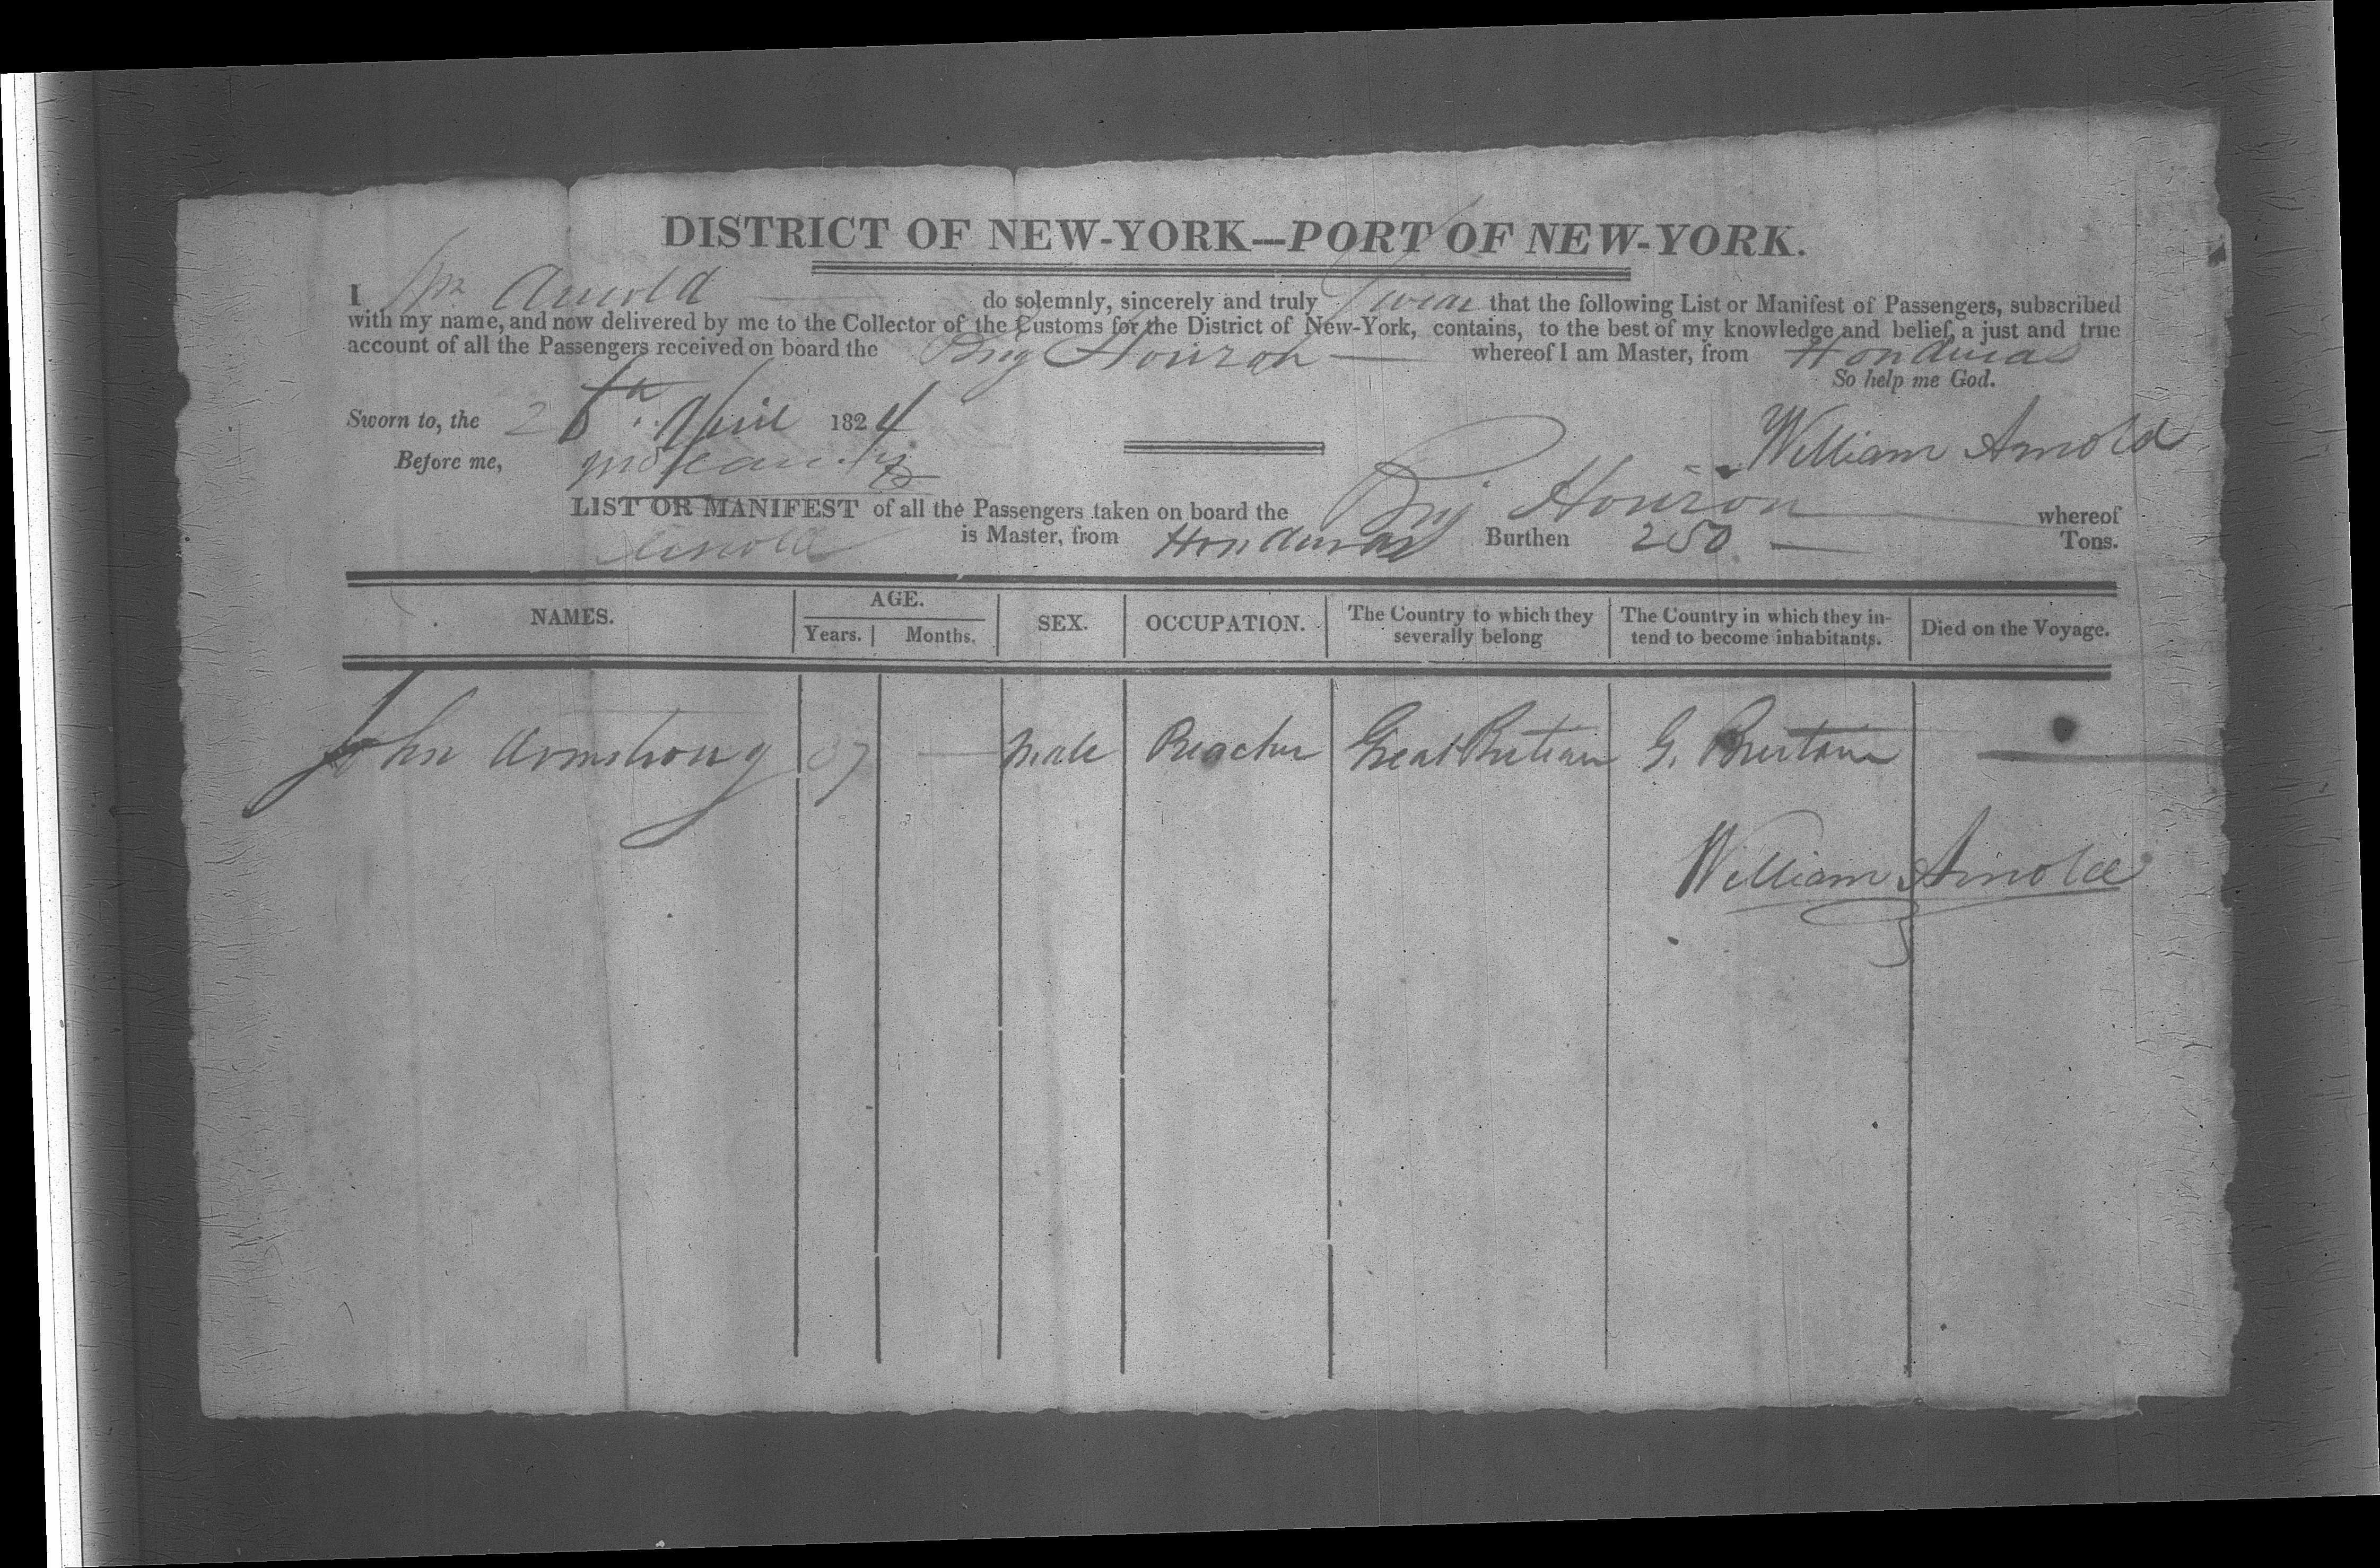 DISTRICT OF NEW-YORK—PORT OF NEW-YORK.
I Wm Arnold do solemnly, sincerely and truly Swear that the following List or Manifest of Passengers, subscribed
with my name, and now delivered by me to the Collector of the Customs for the District of New-York, contains, to the best of my knowledge and belief, a just and true
account of all the Passengers received on board the Brig Horizon whereof I am Master, from Honduras
So help me God.
Sworn to, the 26th April 1824
William Arnold
Before me,
LIST OR MANIFEST of all the Passengers taken on board the Brig Horizon whereof
Arnold is Master, from Honduras Burthen 250 Tons.
NAMES. AGE. Years. Months. SEX. OCCUPATION. The Country to which they severally belong The Country in which they intend to become inhabitants. Died on the Voyage.
John Armstrong 37 — Male Preacher Great Britian G. Briertain —
William Arnold